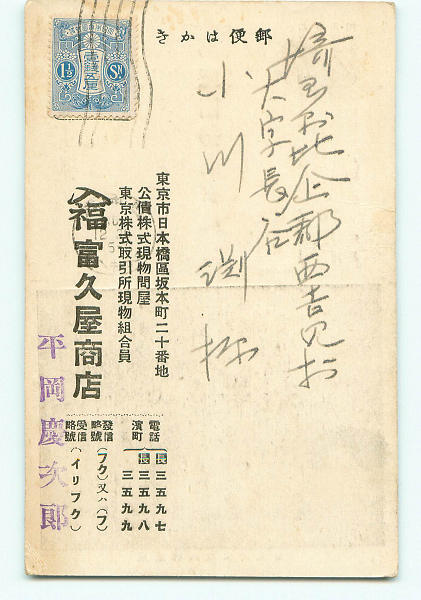 郵便はかき
埼玉縣比企郡西吉見村
大字長谷
小川 渕 様
東京市日本橋區坂本町二十番地
公債株式現物問屋
東京株式取引所現物組合員
入福 富久屋商店
電話 長三五九七
濱町 長三五九八
三五九九
發信略號(フク)又ハ(フ)
受信略號(イリフク)
平岡慶次郎
1½ Sɴ
壹錢五厘